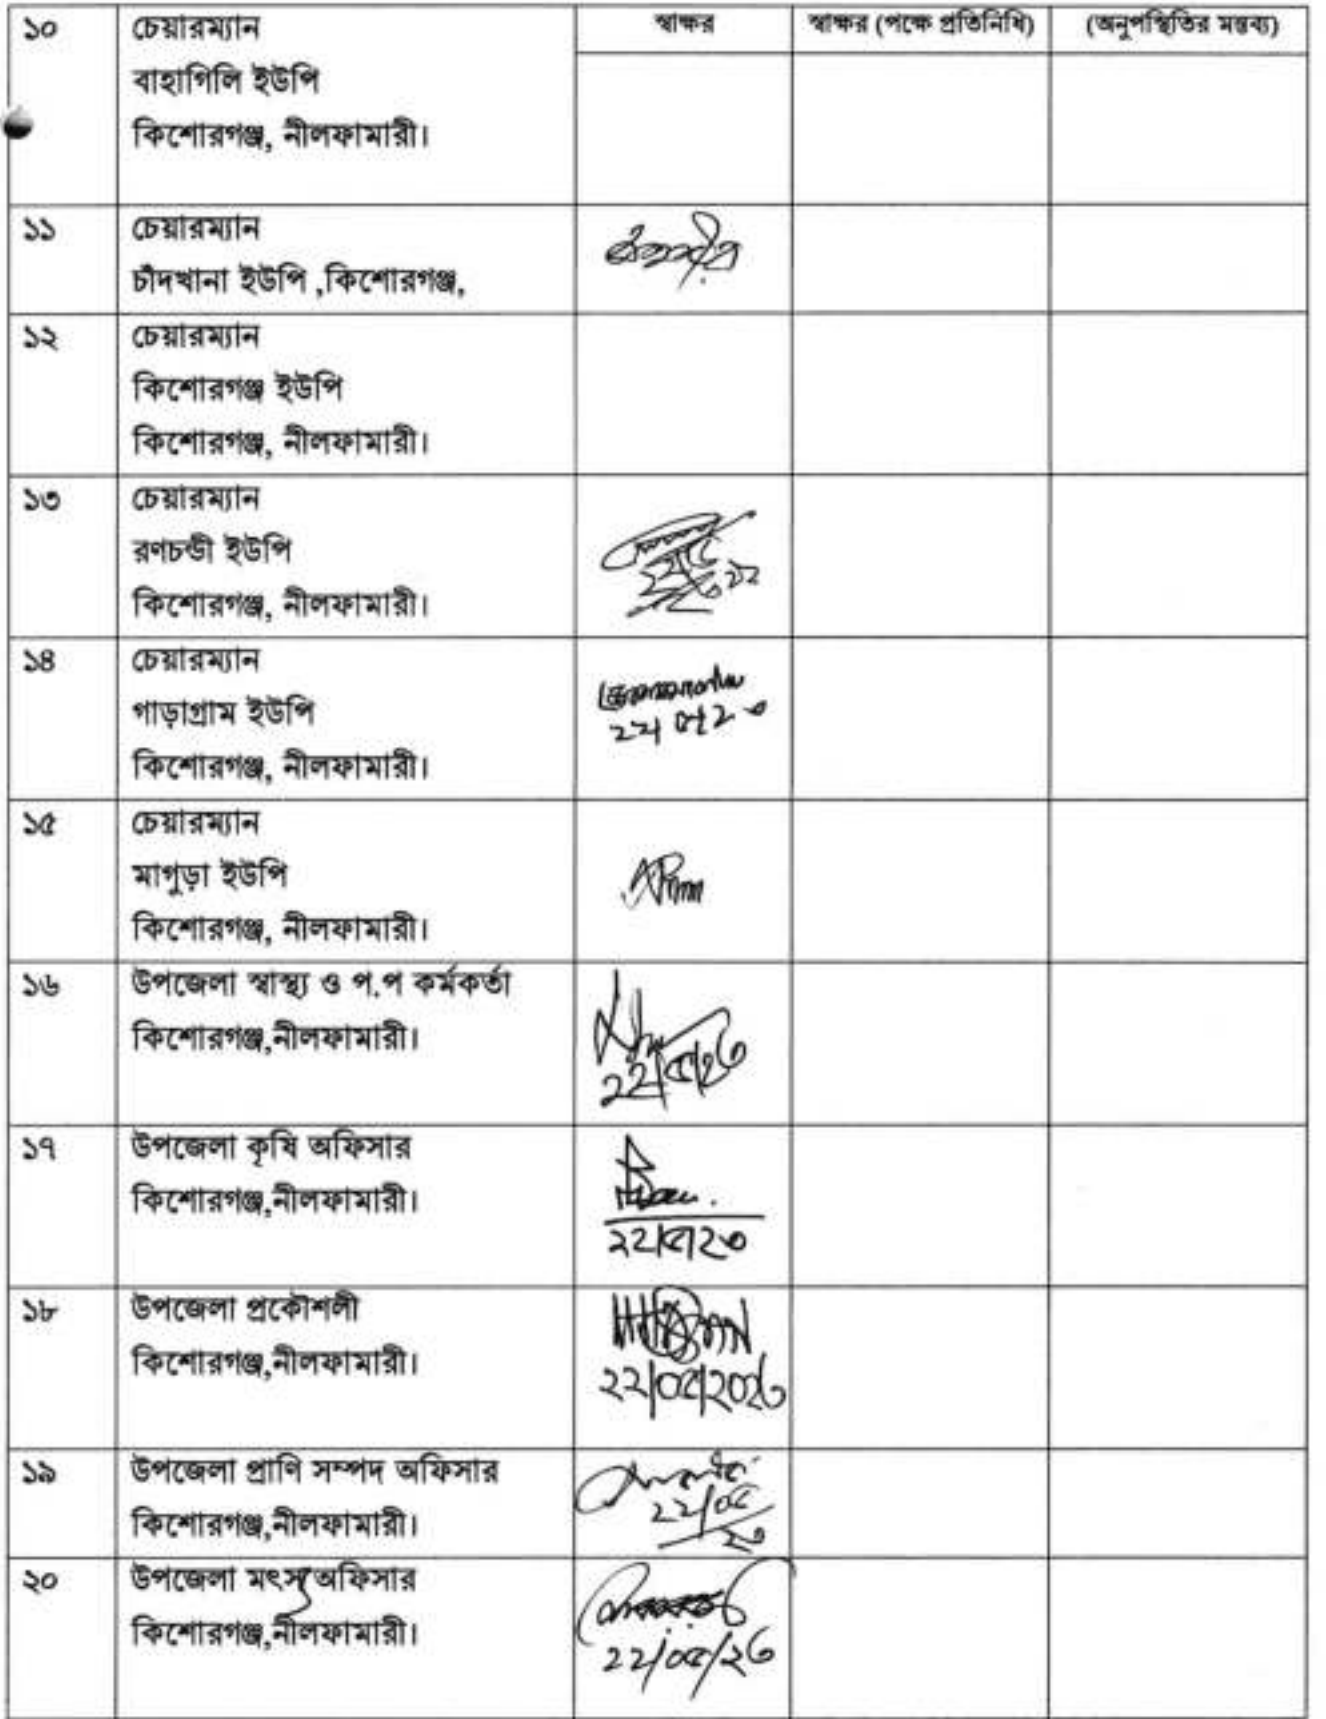 ১০ চেয়ারম্যান স্বাক্ষর স্বাক্ষর (পক্ষে প্রতিনিধি) (অনুপস্থিতির মন্তব্য)
বাহাগিলি ইউপি
কিশোরগঞ্জ, নীলফামারী।
১১ চেয়ারম্যান
চাঁদখানা ইউপি ,কিশোরগঞ্জ,
১২ চেয়ারম্যান
কিশোরগঞ্জ ইউপি
কিশোরগঞ্জ, নীলফামারী।
১৩ চেয়ারম্যান
রণচন্ডী ইউপি
কিশোরগঞ্জ, নীলফামারী।
১৪ চেয়ারম্যান
গাড়াগ্রাম ইউপি
কিশোরগঞ্জ, নীলফামারী।
১৫ চেয়ারম্যান
মাগুড়া ইউপি
কিশোরগঞ্জ, নীলফামারী।
১৬ উপজেলা স্বাস্থ্য ও প.প কর্মকর্তা
কিশোরগঞ্জ,নীলফামারী।
২২/৫/২৩
১৭ উপজেলা কৃষি অফিসার
কিশোরগঞ্জ,নীলফামারী।
২২/৫/২৩
১৮ উপজেলা প্রকৌশলী
কিশোরগঞ্জ,নীলফামারী।
২২/০৫/২০২৩
১৯ উপজেলা প্রাণি সম্পদ অফিসার
২২/০৫
কিশোরগঞ্জ,নীলফামারী।
২৩
২০ উপজেলা মৎস্য অফিসার
কিশোরগঞ্জ,নীলফামারী।
২২/০৫/২৩